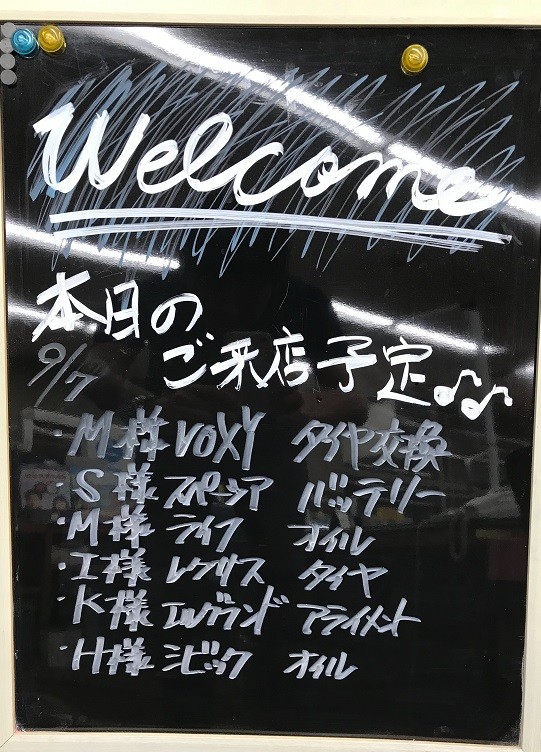 Welcome
本日の
ご来店予定♪♪
9/7
・M様 VOXY タイヤ交換
・S様 スペーシア バッテリー
・M様 ライフ オイル
・I様 レクサス タイヤ
・K様 エルグランド アライメント
・H様 シビック オイル